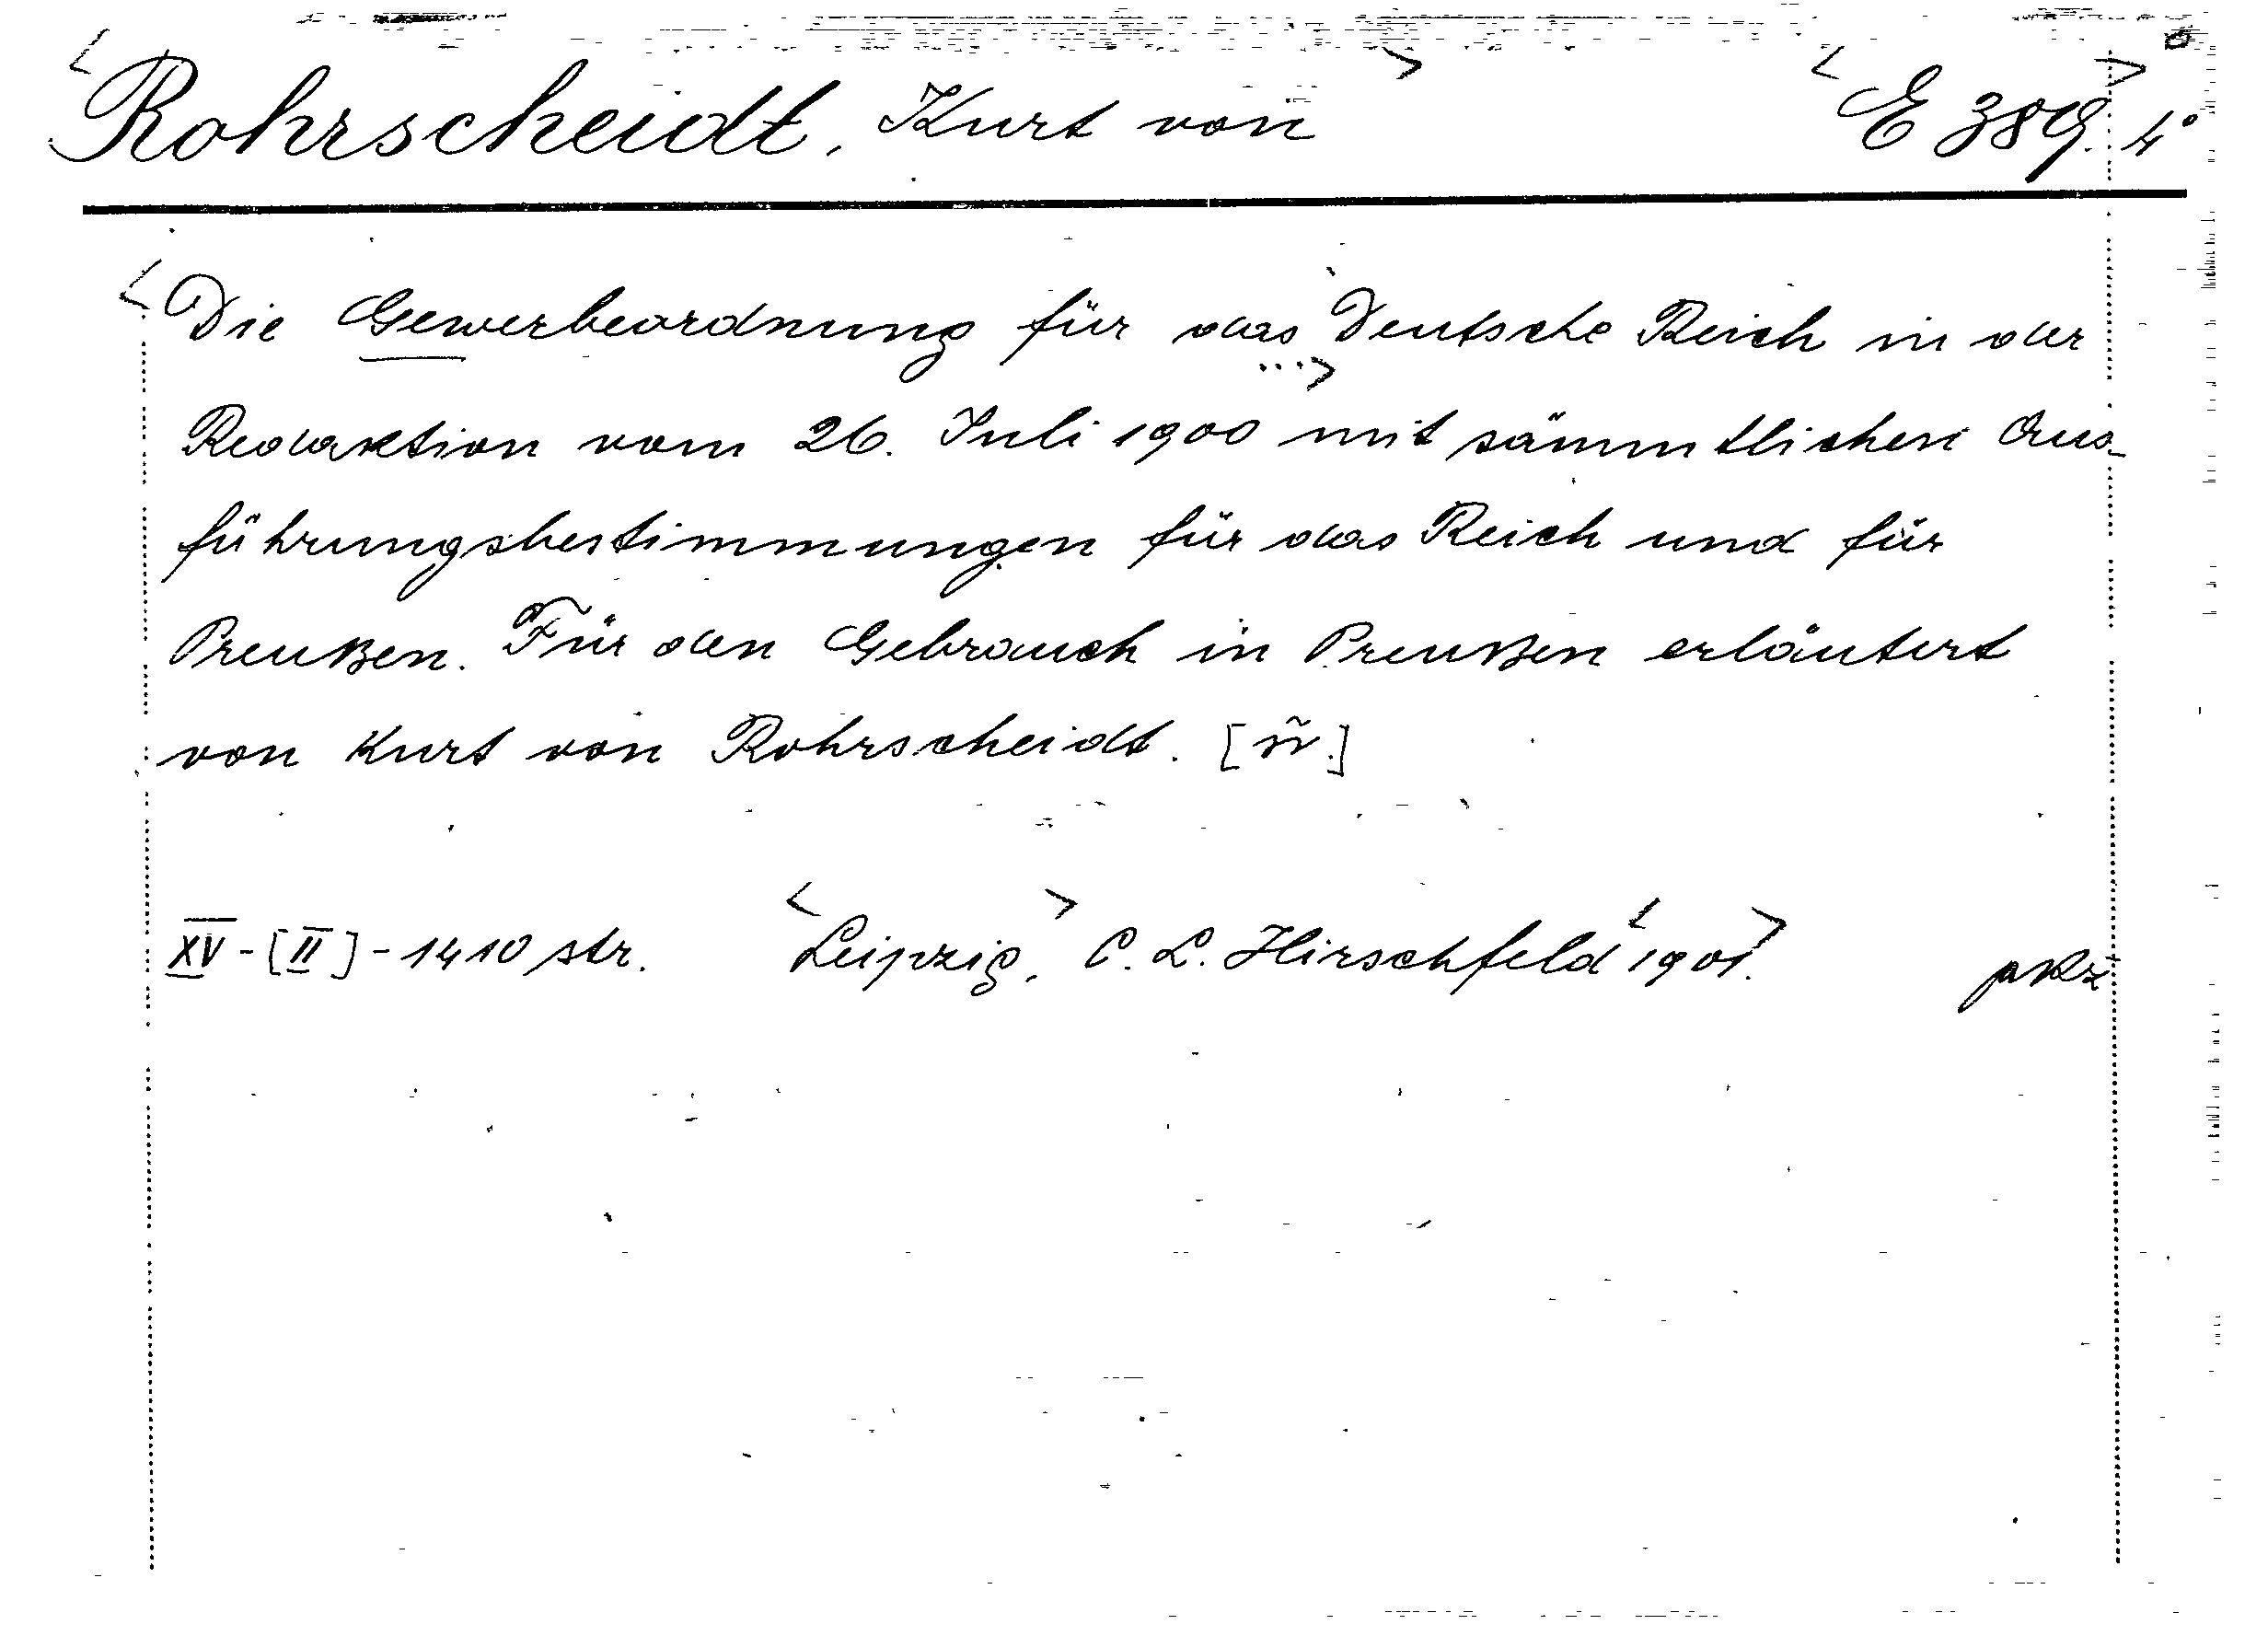 <Rohrscheidt, Kurt von> <E 389. 4°>
<Die Gewerbeordnung für das Deutsche Reich in der
...>
Redaktion vom 26. Juli 1900 mit sämmtlichen Aus-
führungsbestimmungen für das Reich und für
Preußen. Für den Gebrauch in Preußen erläutert
von Kurt von Rohrscheidt. [ñ.]
XV-[II]-1410 str. <Leipzig,> C. L. Hirschfeld <1901.>